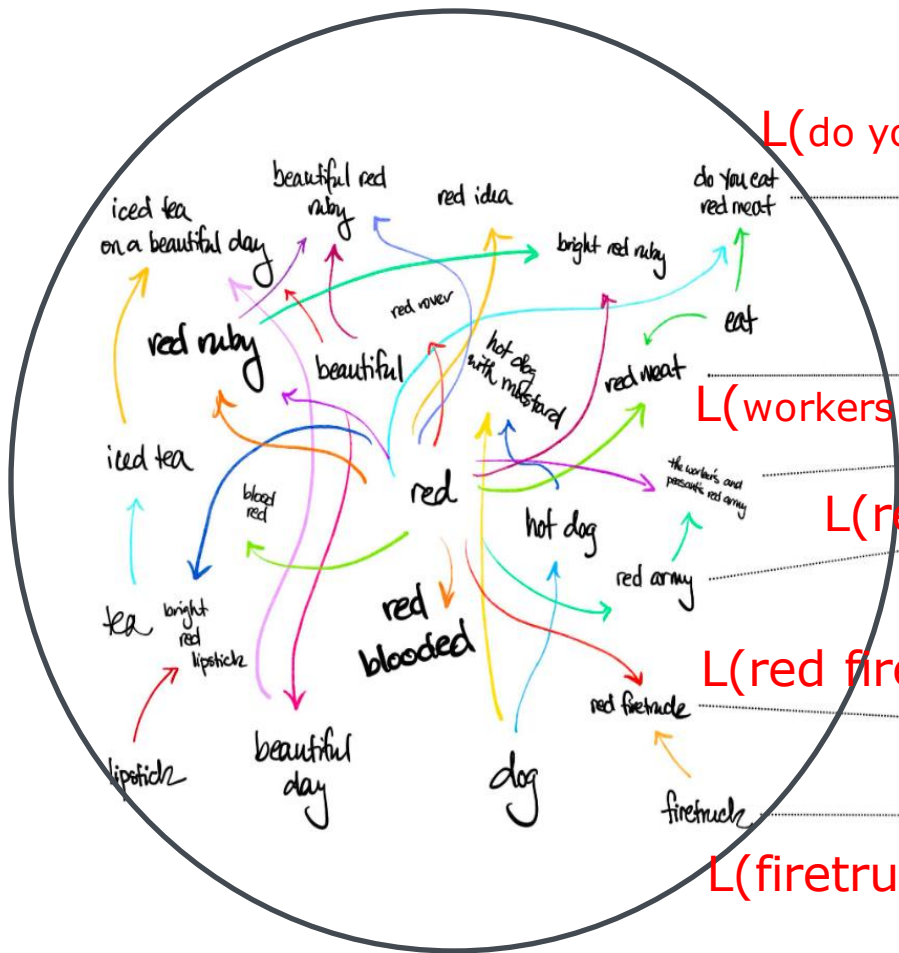 L(do yo
beautiful red
ruby
red idea
do you eat
red meat
iced tea
on a beautiful day
bright red ruby
red rover
eat
red ruby
beautiful
hot dog
with mustard
red meat
L(workers
iced tea
blood
red
red
the worker's and
peasant's red army
L(re
hot dog
red army
tea
bright
red
lipstick
red
blooded
L(red fire
red firetruck
lipstick
beautiful
day
dog
firetruck
L(firetru